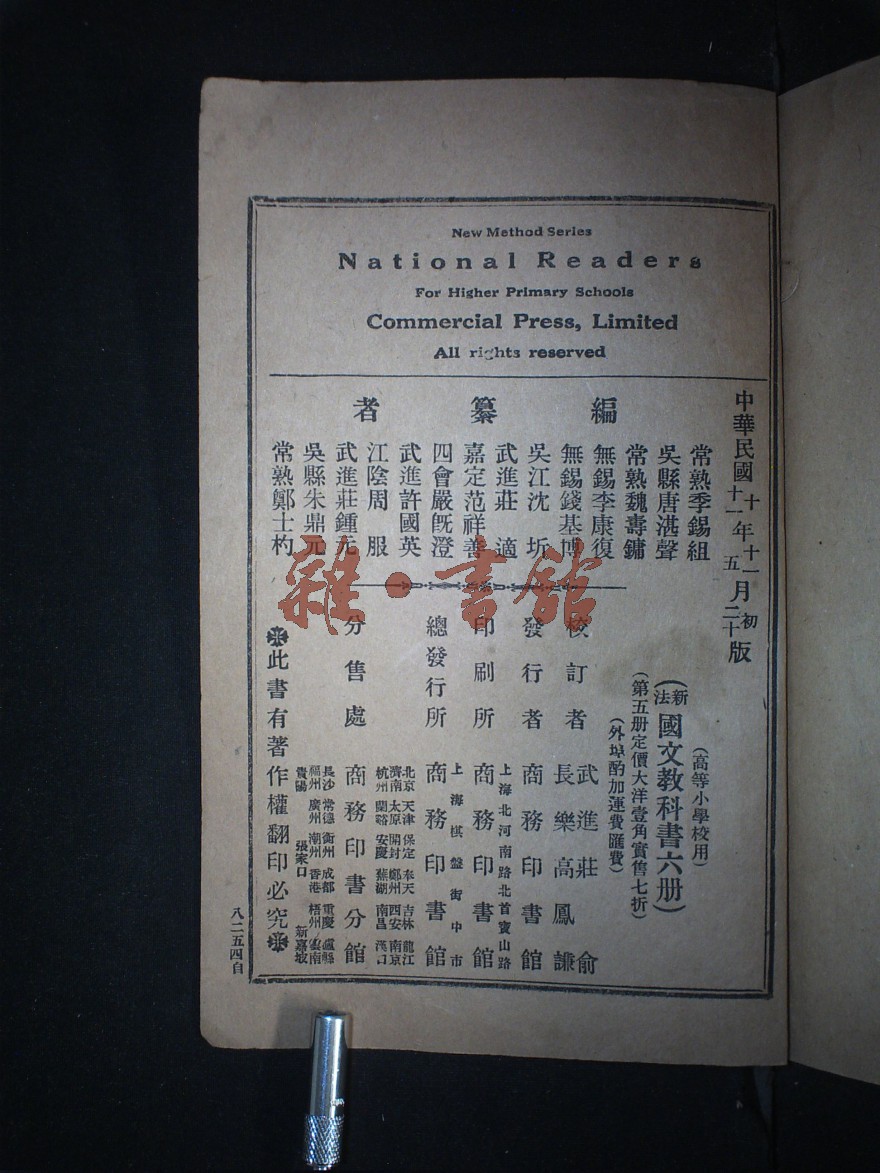 New Method Series
National Readers
For Higher Primary Schools
Commercial Press, Limited
All rights reserved
中華民國十年十一月初版
十一年五月二十版
(高等小學校用)
(新法國文教科書六册)
(第五册定價大洋壹角實售七折)
(外埠酌加運費匯費)
編纂者
常熟季錫組
吳縣唐湛聲
常熟魏壽鏞
無錫李康復
無錫錢基博
吳江沈圻
武進莊適
嘉定范祥善
四會嚴旣澄
武進許國英
江陰周服
武進莊鍾元
吳縣朱鼎元
常熟鄭士杓
校訂者
武進莊俞
長樂高鳳謙
發行者
商務印書館
印刷所
上海北河南路北首寶山路
商務印書館
總發行所
上海棋盤街中市
商務印書館
分售處
北京 天津 保定 奉天 吉林 龍江
濟南 太原 開封 鄭州 西安 南京
杭州 蘭谿 安慶 蕪湖 南昌 漢口
商務印書分館
長沙 常德 衡州 成都 重慶 瀘縣
福州 廣州 潮州 香港 梧州 雲南
貴陽 張家口 新嘉坡
此書有著作權翻印必究
八二五四自
雜·書館